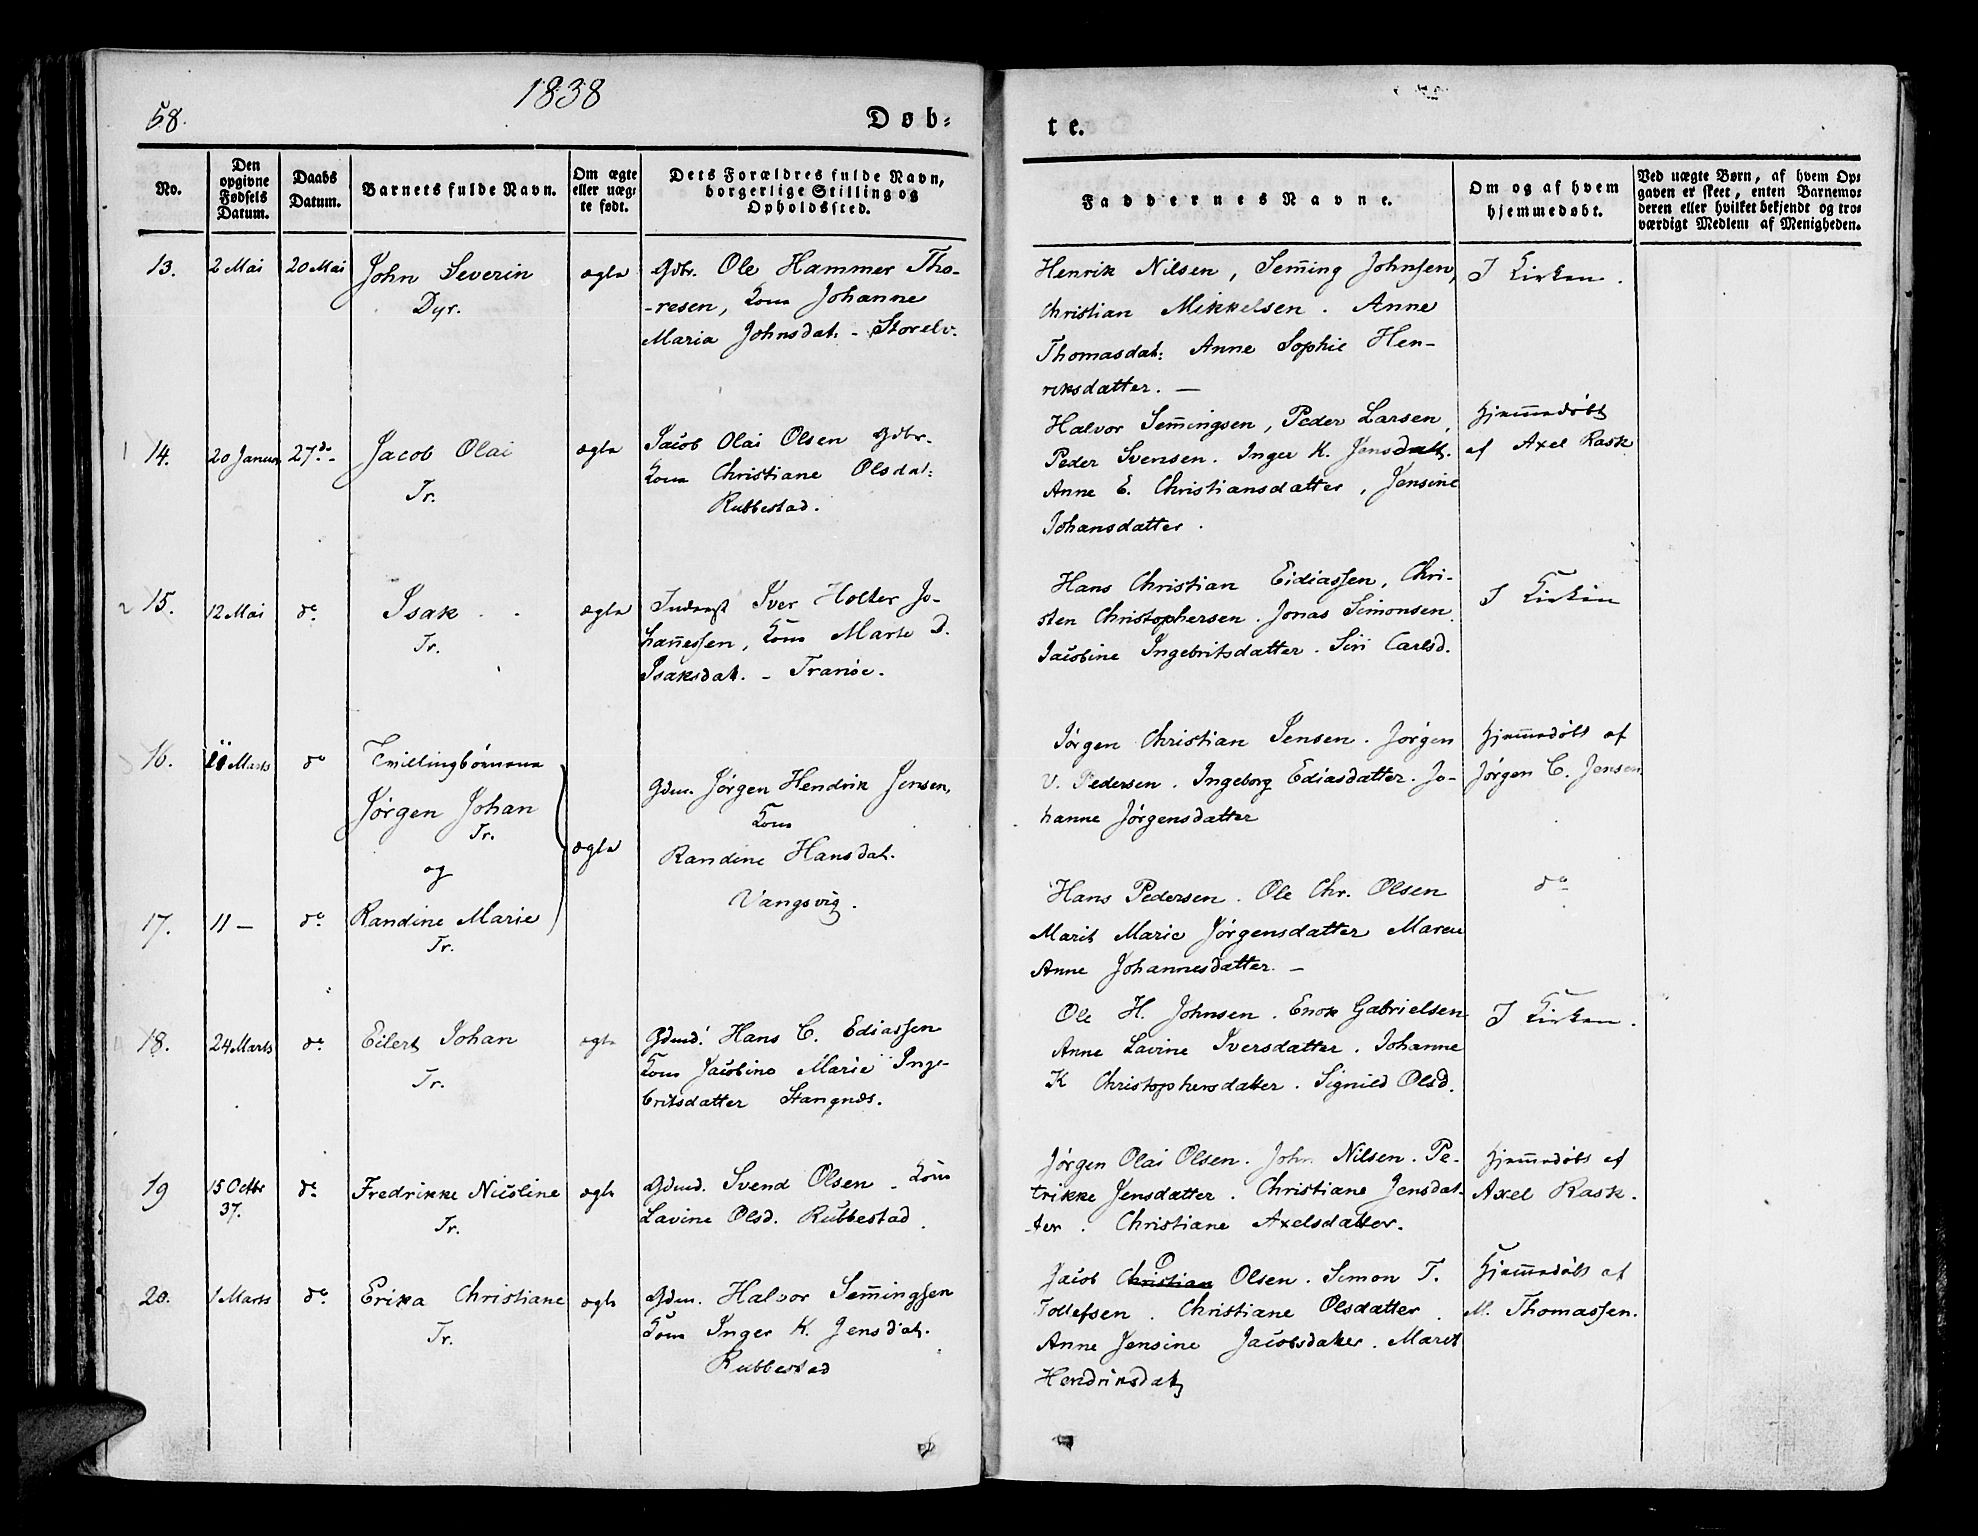 58.
1838
Døb-
te.
No.
Den
opgivne
Fødsels
Datum.
Daabs
Datum.
Barnets fulde Navn.
Om ægte
eller uæg-
te født.
Dets Forældres fulde Navn,
borgerlige Stilling og
Opholdssted.
Faddernes Navne.
Om og af hvem
hjemmedøbt.
Ved uægte Børn, af hvem Op-
gaven er skeet, enten Barnemo-
deren eller hvilket bekjendt og tro-
værdigt Medlem af Menigheden.
13.
2 Mai
20 Mai
John Severin
Dyr.
ægte
Gdbr. Ole Hammer Tho-
-resen, Kone Johanne
Maria Johnsdat. - Storelv.
Henrik Nilsen, Sem̄ing Johnsen,
Christian Mikkelsen. Anne
Thomasdat: Anne Sophie Hen-
riksdatter. —
I Kirken.
1 14.
20 Januar
27 do
Jacob Olai
Tr.
ægte
Jacob Olai Olsen Gdbr.
Kone Christiane Olsdat:
Rubbestad.
Halvor Sem̄ingsen, Peder Larsen,
Peder Svensen. Inger K. Jensdatt.
Anne E. Christiansdatter, Jensine
Johansdatter.
Hjem̄edøbt
af Axel Rask
2 15.
12 Mai
do
Isak
Tr.
ægte
Inderst Iver Holter Jo-
han̄essen, Kone Marte D.
Isaksdat. - Tranöe.
Hans Christian Eidiassen, Chri-
sten Christophersen. Jonas Simonsen.
Jacobine Ingebritsdatter. Siri Carlsd.
I Kirken
16.
11 Marts
do
Tvillingbørnene
Jørgen Johan
Tr.
og
ægte
Gdm. Jørgen Hendrik Jensen,
Kone
Randine Hansdat.
Vangsvig.
Jørgen Christian Jensen. Jørgen
V. Pedersen. Ingeborg Ediasdatter. Jo-
hanne Jørgensdatter
Hjem̄edøbt af
Jørgen C. Jensen
17.
11 —
do
Randine Marie
Tr.
Hans Pedersen. Ole Chr. Olsen
Marit Marie Jørgensdatter Maren
Anne Johannesdatter. —
do
18.
24 Marts
do
Eilert Johan
Tr.
ægte
Gdmd. Hans C. Ediassen
Kone Jacobine Marie Inge-
britsdatter Stangnes.
Ole H. Johnsen. Enok Gabrielsen
Anne Lavine Iversdatter. Johanne
K Christophersdatter. Signild Olsd.
I Kirken.
19
15 Octbr
37.
do
Fredrikke Nicoline
Tr.
ægte
Gdmd. Svend Olsen - Kone
Lavine Olsd. Rubbestad.
Jørgen Olai Olsen. John Nilsen. Pe-
trikke Jensdatter. Christiane Jensdat-
-ter. Christiane Axelsdatter.
Hjem̄edøbt af
Axel Rask.
20.
1 Marts
do
Erika Christiane
Tr.
ægte
Gdm. Halvor Sem̄ingsen
Kone Inger K. Jensdat.
Rubbestad
Jacob Christian O Olsen. Simon T.
Tollefsen. Christiane Olsdatter.
Anne Jensine Jacobsdatter. Maret
Hendriksdat
Hjem̄edøbt af
M. Thomassen.